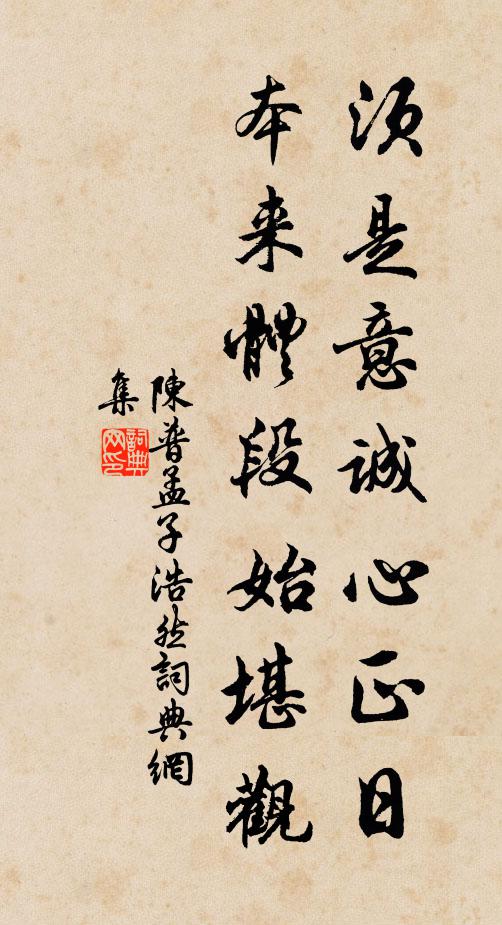 須是意誠心正日
本来體段始堪觀
陳普孟子浩然詞典網
集
詞典网印